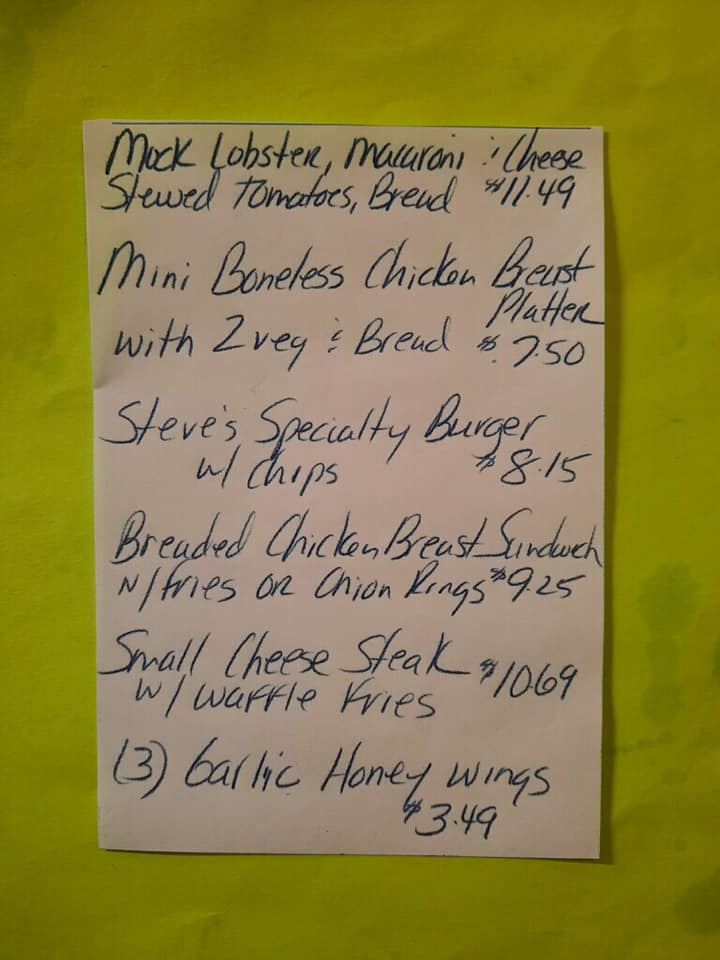 Mock Lobster, Macaroni & Cheese
Stewed Tomatoes, Bread $11.49
Mini Boneless Chicken Breast
Platter
with 2 veg & Bread $7.50
Steve's Specialty Burger
w/ chips $8.15
Breaded Chicken Breast Sandwich
w/ fries or Onion Rings $9.25
Small Cheese Steak $10.69
w/ waffle fries
(3) Garlic Honey wings
$3.49